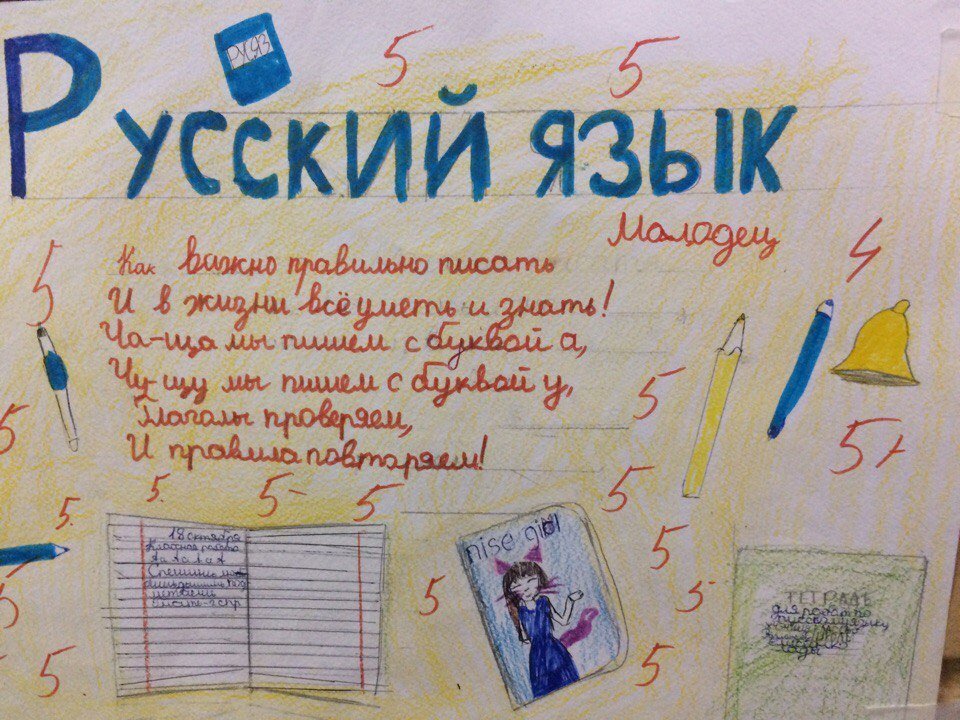 РУСЯЗ
5 5
Русский язык
Молодец
5 4
Как важно правильно писать
И в жизни всё уметь и знать!
Ча-ща мы пишем с буквой а,
Чу-щу мы пишем с буквой у,
Глаголы проверяем,
И правила повторяем!
5 5 5+
5. 5. 5- 5 5
18 октября
Классная работа
Аа Аа Аа
nise girl
5 5 5 5
ТЕТРАДЬ
для работ по
русскому языку
5 5 5